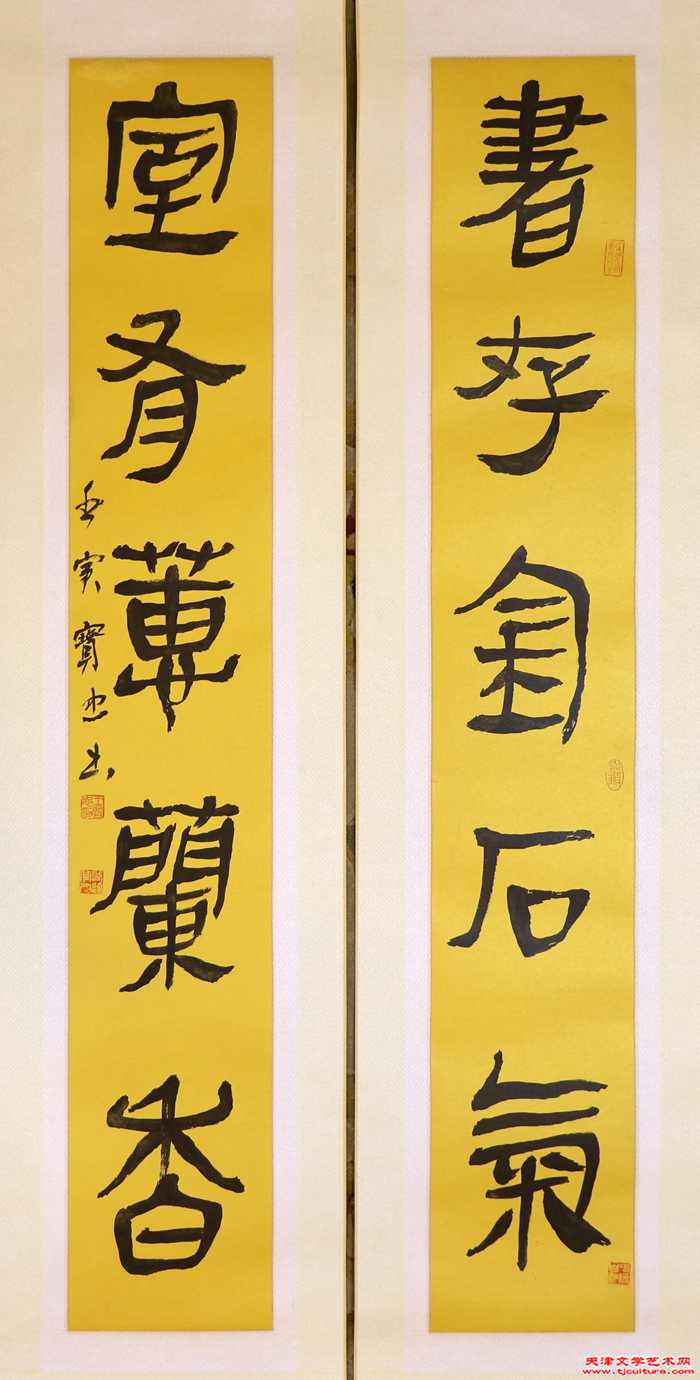 書存金石氣
室有蕙蘭香
壬寅寶忠書
天津文学艺术网
www.tjculture.com